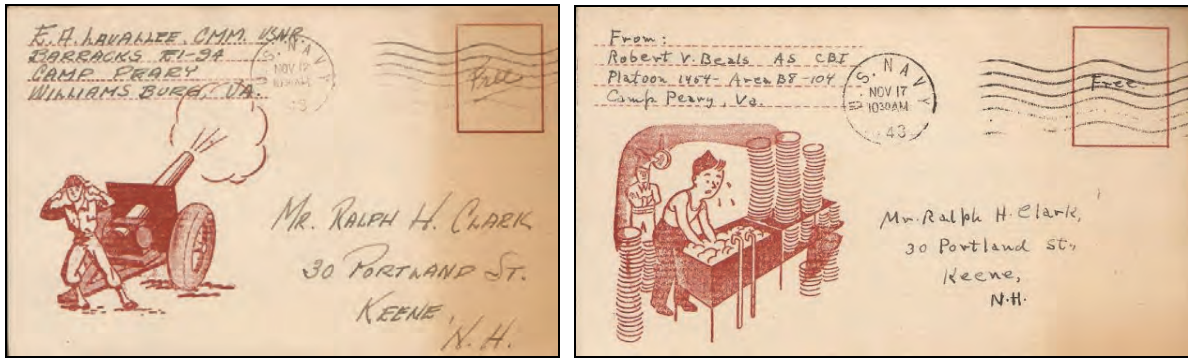 E.A. LAVALLEE, CMM, USNR.
BARRACKS
CAMP PEARY
WILLIAMSBURG, VA.
U.S. NAVY
NOV 17
43
Free
MR. RALPH H. CLARK
30 PORTLAND ST.
KEENE,
N.H.
From:
Robert V. Beals AS CBI
Platoon 1464- Area B8-104
Camp Peary, Va.
U.S. NAVY
NOV 17
1030AM
43
Free
Mr. Ralph H. Clark,
30 Portland St.,
Keene,
N.H.